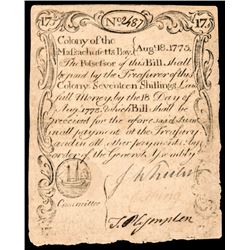 17s No 2487 17s
Colony of the
Massachusetts Bay, Aug. 18. 1775.
The Possessor of this Bill shall
be paid by the Treasurer of this
Colony Seventeen Shillings Law
full Money by the 18 Day of
Aug. 1778 which Bill shall be
received for the aforesaid Sum
in all payments at the Treasury
and in all other payments by
order of the General Assembly
J Wheeler
Committee